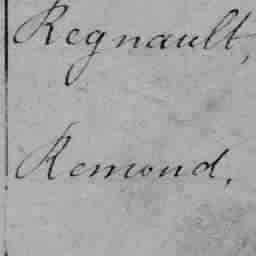 Regnault,
Remond.